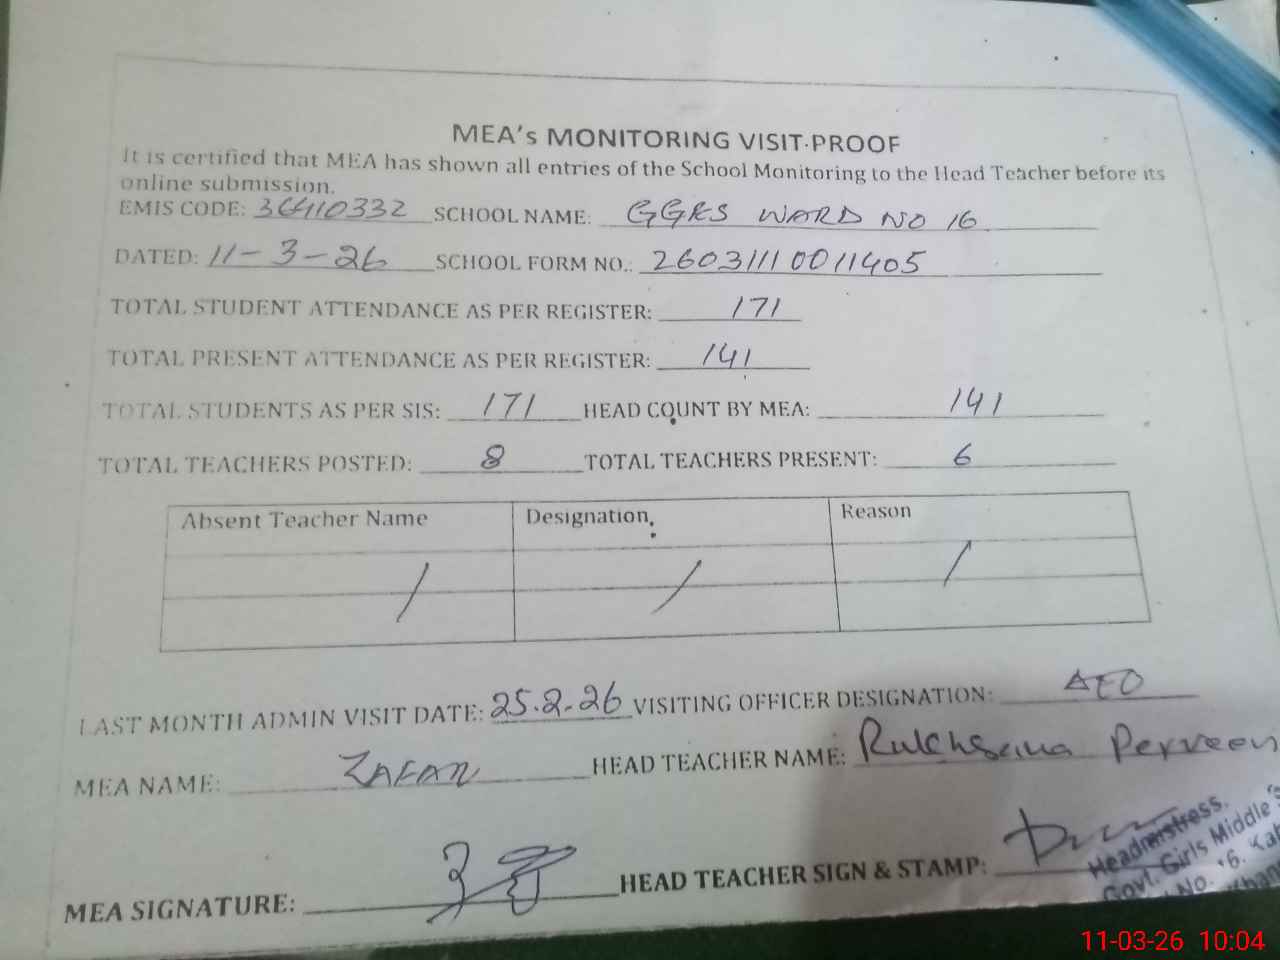 MEA's MONITORING VISIT PROOF
It is certified that MEA has shown all entries of the School Monitoring to the Head Teacher before its
online submission.
EMIS CODE: 36410332 SCHOOL NAME: GGES WARD NO 16
DATED: 11-3-26 SCHOOL FORM NO.: 26031110011405
TOTAL STUDENT ATTENDANCE AS PER REGISTER: 171
TOTAL PRESENT ATTENDANCE AS PER REGISTER: 141
TOTAL STUDENTS AS PER SIS: 171 HEAD COUNT BY MEA: 141
TOTAL TEACHERS POSTED: 8 TOTAL TEACHERS PRESENT: 6
Absent Teacher Name Designation Reason
/ / /
LAST MONTH ADMIN VISIT DATE: 25.2.26 VISITING OFFICER DESIGNATION: AEO
MEA NAME: ZAFAR HEAD TEACHER NAME: Rukhsana Perveen
MEA SIGNATURE: HEAD TEACHER SIGN & STAMP:
Headmistress.
Govt. Girls Middle
No. 16.
11-03-26 10:04